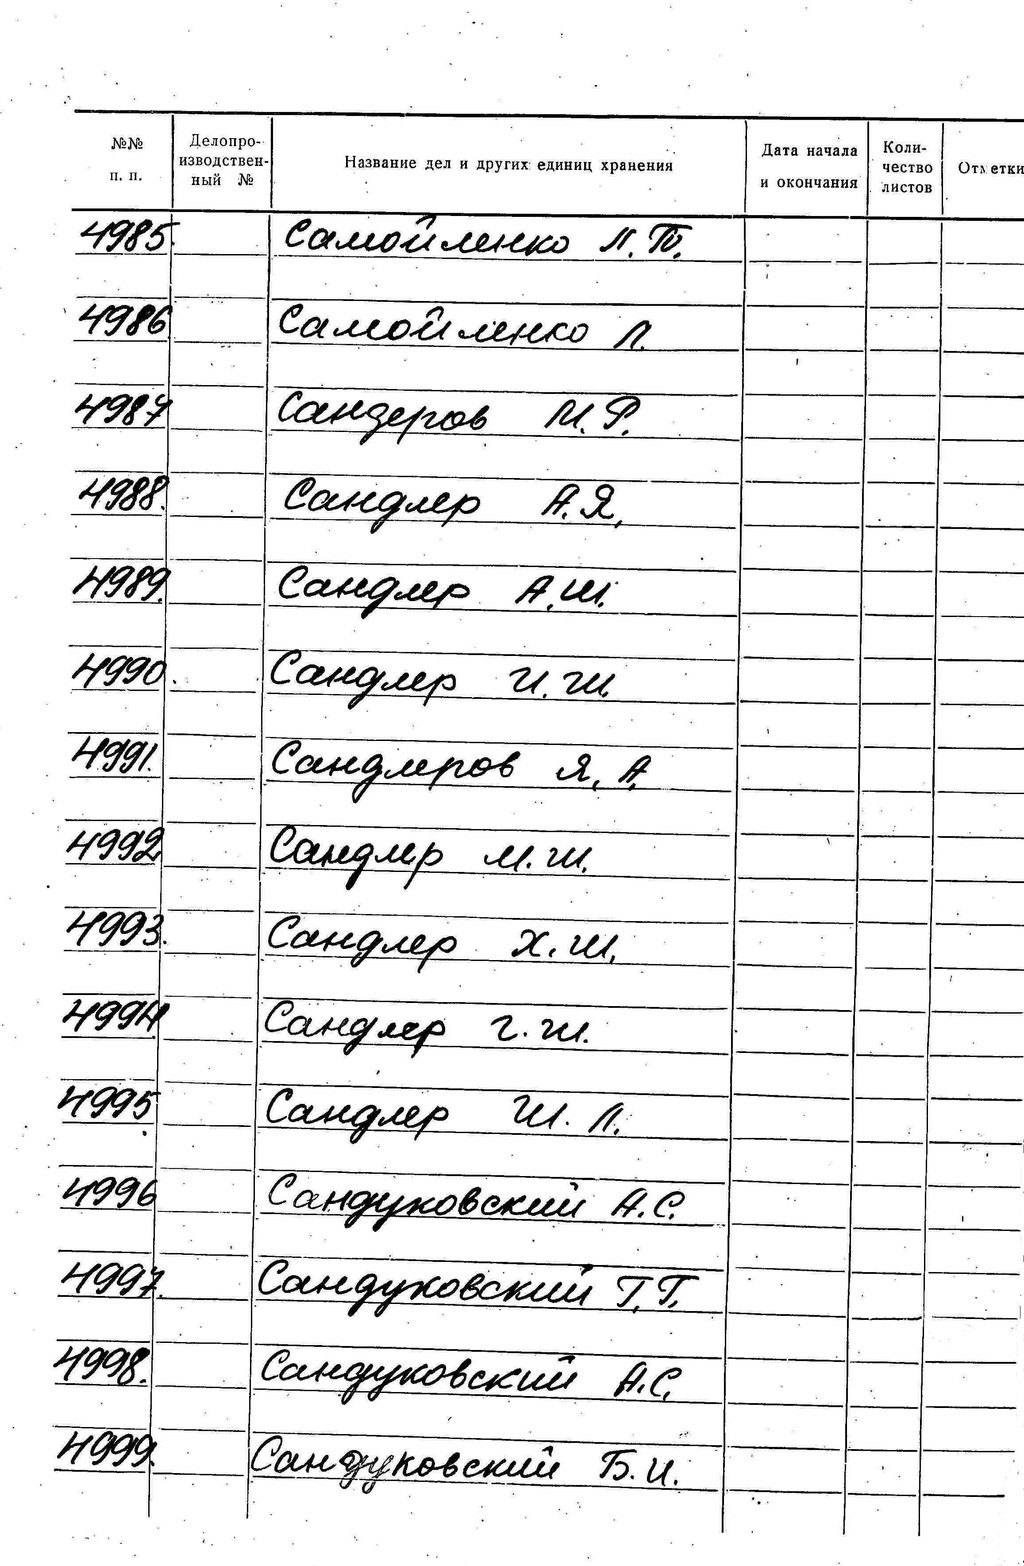 №№ п. п.
Делопроизводственный №
Название дел и других единиц хранения
Дата начала и окончания
Количество листов
Отметки
4985. Самойленко П.
4986 Самойленко Л.
4987 Сандеров М. Р.
4988. Сандлер А. Я.
4989. Сандлер А. Ш.
4990. Сандлер И. Ш.
4991. Сандлеров Я. А.
4992 Сандлер М. Ш.
4993. Сандлер Х. Ш.
4994 Сандлер Г. Ш.
4995 Сандлер Ш. Л.
4996 Сандуковский А. С.
4997. Сандуковский Г. Г.
4998. Сандуковский А. С.
4999. Сандуковский Б. И.